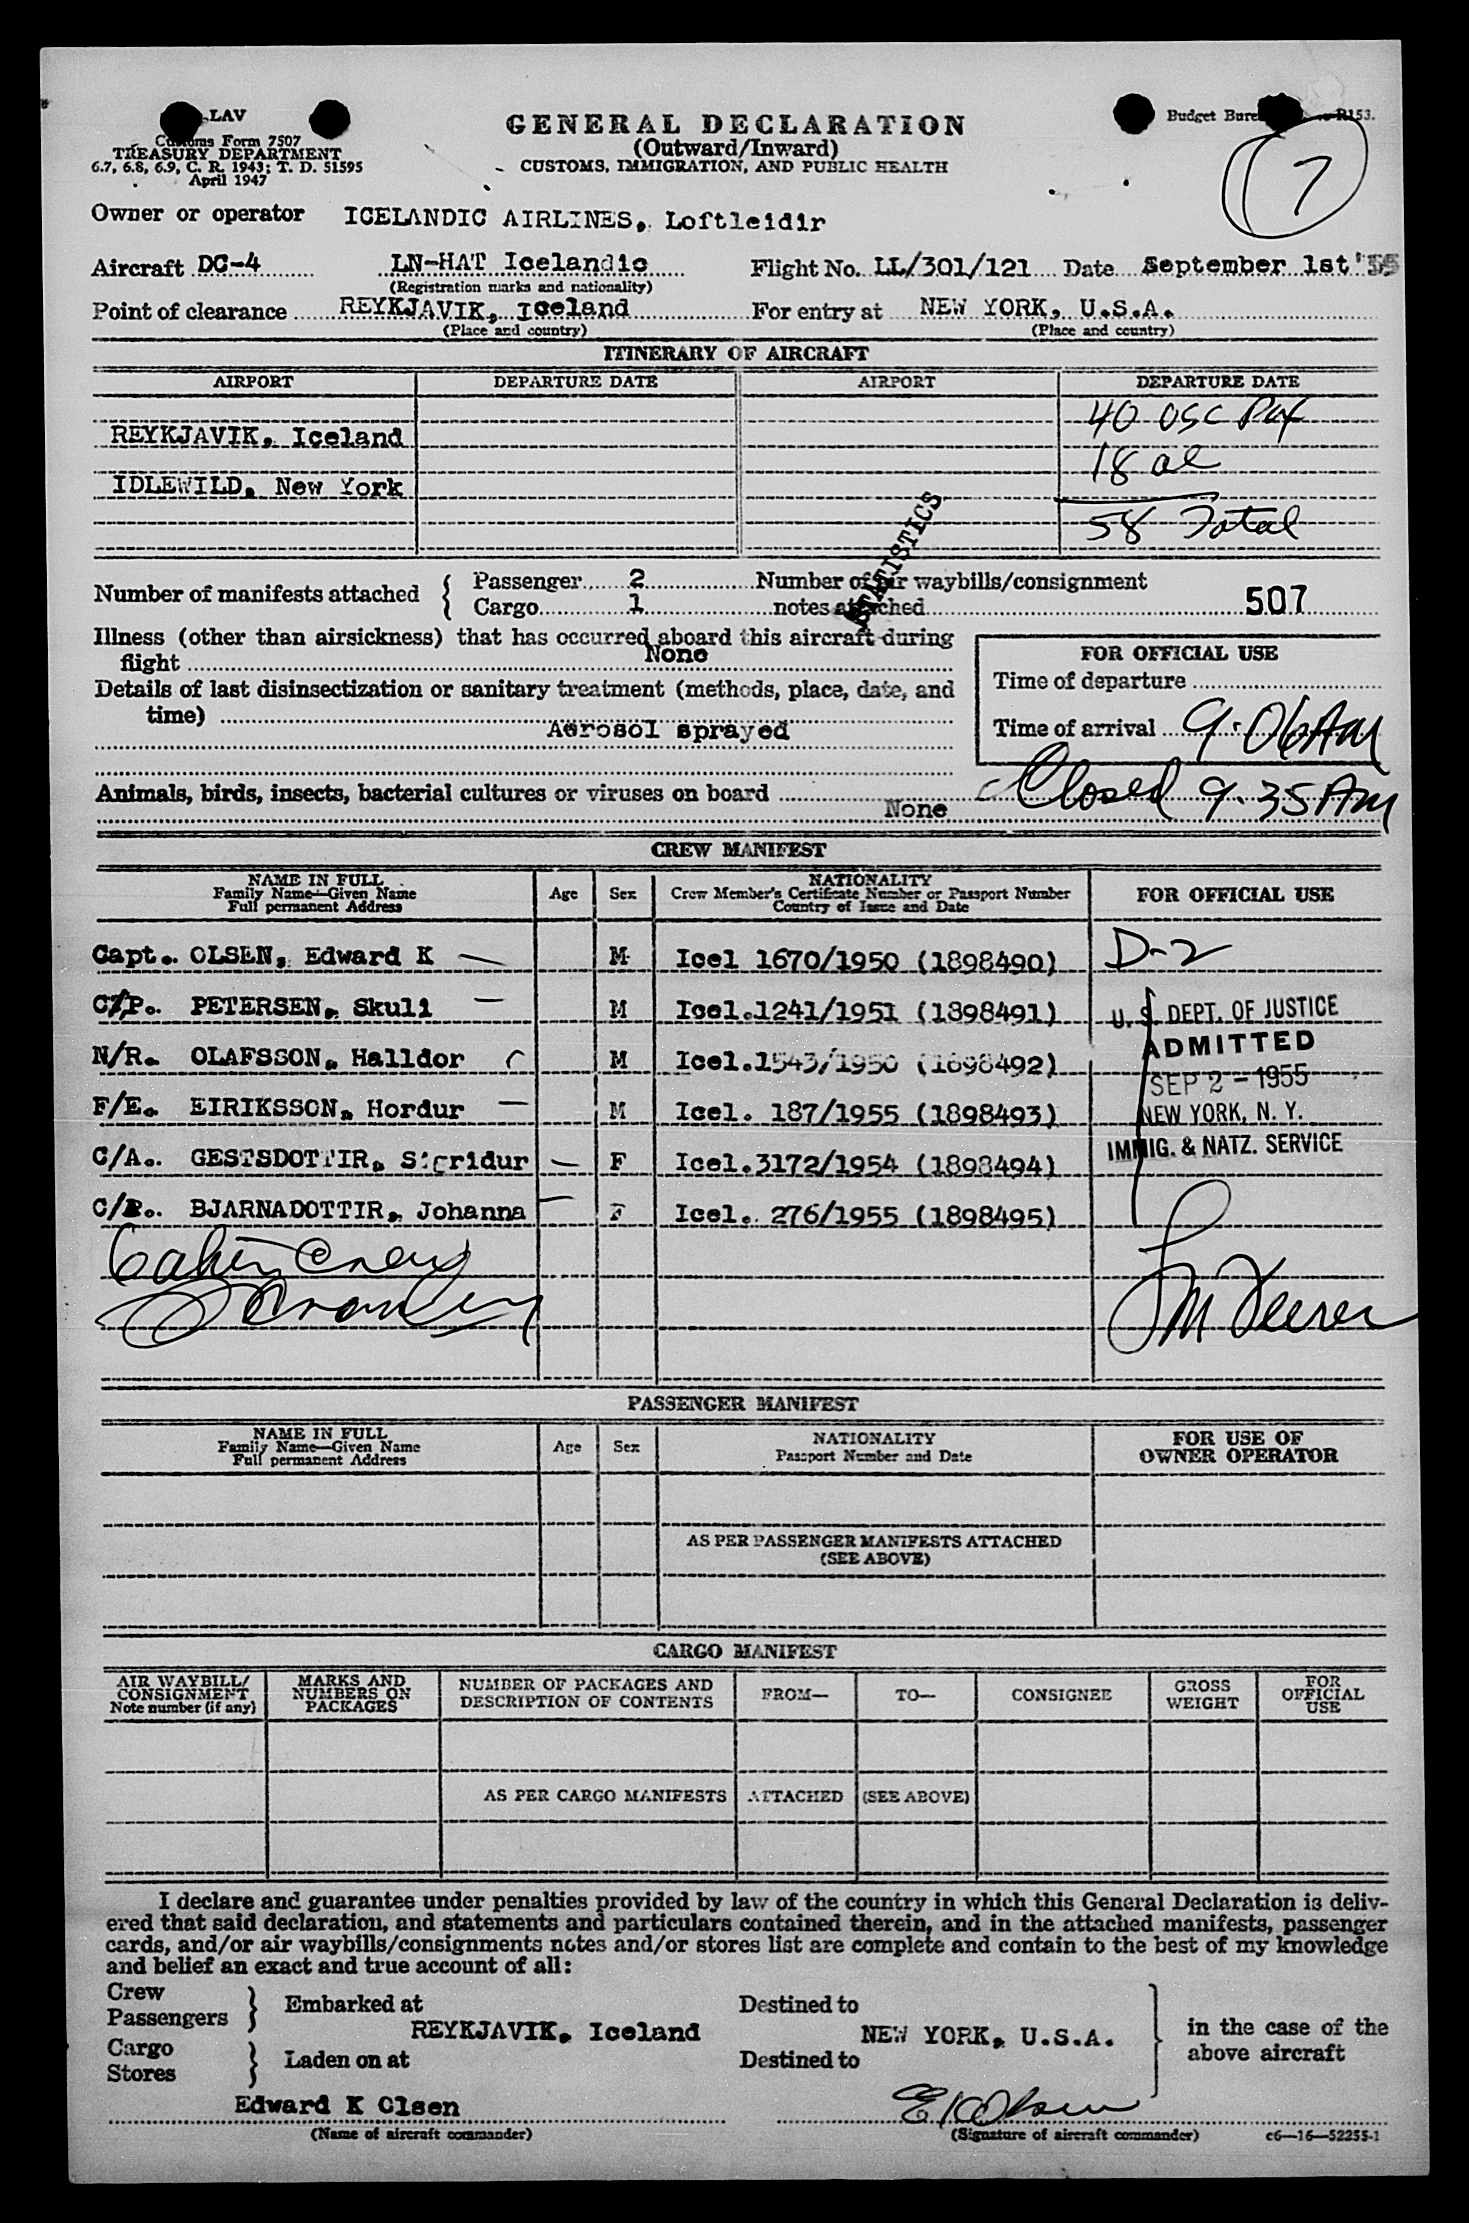 LAV
Customs Form 7507
TREASURY DEPARTMENT
6.7, 6.8, 6.9, C. R. 1943; T. D. 51595
April 1947
GENERAL DECLARATION
(Outward/Inward)
CUSTOMS, IMMIGRATION, AND PUBLIC HEALTH
Budget R153.
7
Owner or operator ICELANDIC AIRLINES, Loftleidir
Aircraft DC-4 LN-HAT Icelandic Flight No. LL/301/121 Date September 1st '55
(Registration marks and nationality)
Point of clearance REYKJAVIK, Iceland For entry at NEW YORK, U.S.A.
(Place and country) (Place and country)
ITINERARY OF AIRCRAFT
AIRPORT DEPARTURE DATE AIRPORT DEPARTURE DATE
40 OSC Pax
REYKJAVIK, Iceland
18 al
IDLEWILD, New York
58 Total
STATISTICS
Number of manifests attached { Passenger 2 Number of air waybills/consignment
Cargo 1 notes attached 507
Illness (other than airsickness) that has occurred aboard this aircraft during
flight None
FOR OFFICIAL USE
Time of departure
Details of last disinsectization or sanitary treatment (methods, place, date, and
time) Aerosol sprayed
Time of arrival 9:06 AM
Closed 9.35 AM
Animals, birds, insects, bacterial cultures or viruses on board None
CREW MANIFEST
NAME IN FULL
Family Name—Given Name
Full permanent Address
Age Sex
NATIONALITY
Crew Member's Certificate Number or Passport Number
Country of Issue and Date
FOR OFFICIAL USE
Capt. OLSEN, Edward K — M Icel 1670/1950 (1898490) D-2
C/P. PETERSEN, Skuli — M Icel.1241/1951 (1898491)
N/R. OLAFSSON, Halldor M Icel.1543/1950 (1898492)
F/E. EIRIKSSON, Hordur — M Icel. 187/1955 (1898493)
C/A. GESTSDOTTIR, Sigridur — F Icel.3172/1954 (1898494)
BJARNADOTTIR, Johanna — F Icel. 276/1955 (1898495)
U. S. DEPT. OF JUSTICE
ADMITTED
SEP 2 - 1955
NEW YORK, N. Y.
IMMIG. & NATZ. SERVICE
PASSENGER MANIFEST
NAME IN FULL
Family Name—Given Name
Full permanent Address
Age Sex
NATIONALITY
Passport Number and Date
FOR USE OF
OWNER OPERATOR
AS PER PASSENGER MANIFESTS ATTACHED
(SEE ABOVE)
CARGO MANIFEST
AIR WAYBILL/
CONSIGNMENT
Note number (if any)
MARKS AND
NUMBERS ON
PACKAGES
NUMBER OF PACKAGES AND
DESCRIPTION OF CONTENTS
FROM— TO— CONSIGNEE
GROSS
WEIGHT
FOR
OFFICIAL
USE
AS PER CARGO MANIFESTS ATTACHED (SEE ABOVE)
I declare and guarantee under penalties provided by law of the country in which this General Declaration is deliv-
ered that said declaration, and statements and particulars contained therein, and in the attached manifests, passenger
cards, and/or air waybills/consignments notes and/or stores list are complete and contain to the best of my knowledge
and belief an exact and true account of all:
Crew
Passengers } Embarked at Destined to
REYKJAVIK, Iceland NEW YORK, U.S.A. } in the case of the
above aircraft
Cargo
Stores } Laden on at Destined to
Edward K Olsen EKOlsen
(Name of aircraft commander) (Signature of aircraft commander) c6—16—52255-1